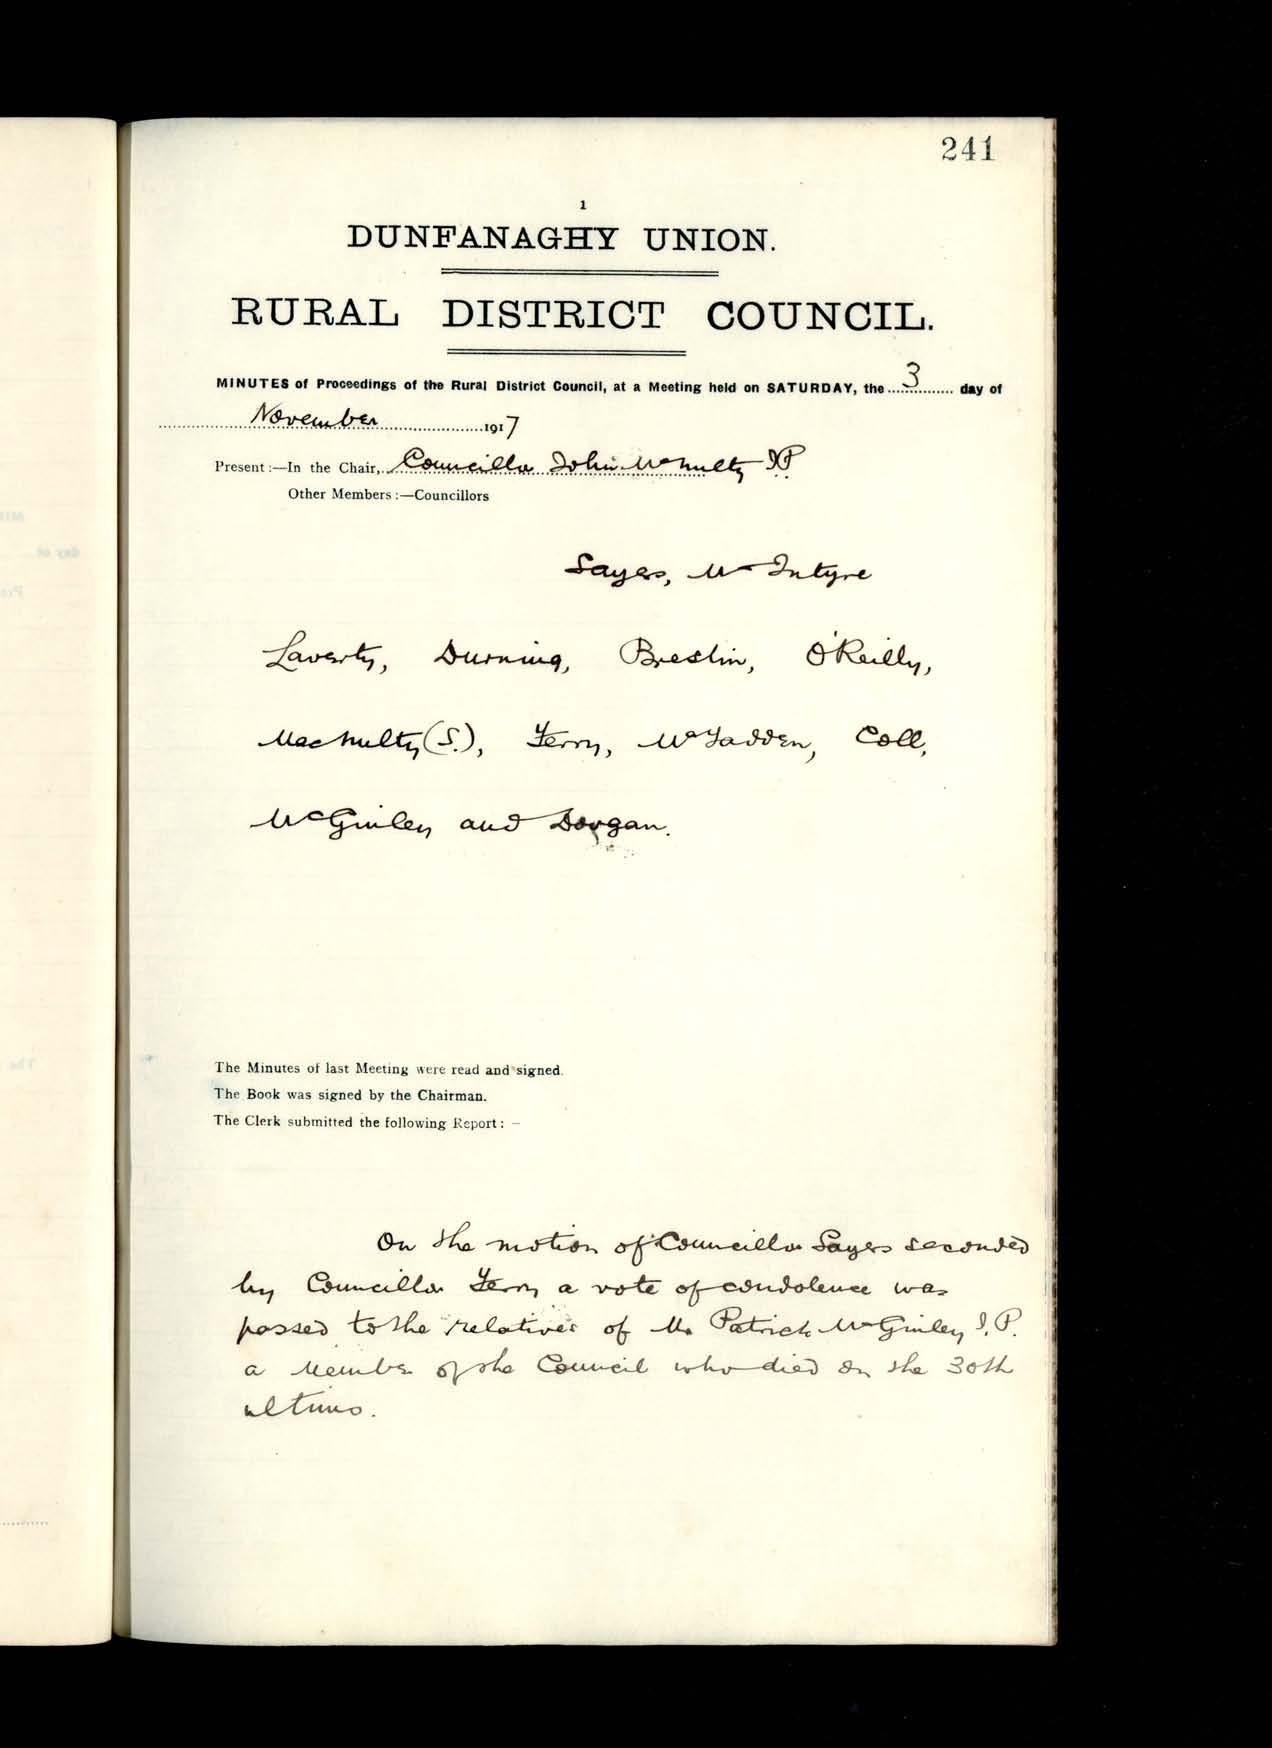 241
1
DUNFANAGHY UNION.
RURAL DISTRICT COUNCIL.
MINUTES of Proceedings of the Rural District Council, at a Meeting held on SATURDAY, the 3 day of
November 1917
Present :—In the Chair, Councillor John McNulty J.P.
Other Members :—Councillors
Sayers, McIntyre
Laverty, Durning, Breslin, O'Reilly,
MacNulty (S.), Ferry, McFadden, Coll,
McGinley and Dorgan.
The Minutes of last Meeting were read and signed.
The Book was signed by the Chairman.
The Clerk submitted the following Report: –
On the motion of Councillor Sayers seconded
by Councillor Ferry a vote of condolence was
passed to the relatives of Mr Patrick McGinley J.P.
a Member of the Council who died on the 30th
ultimo.